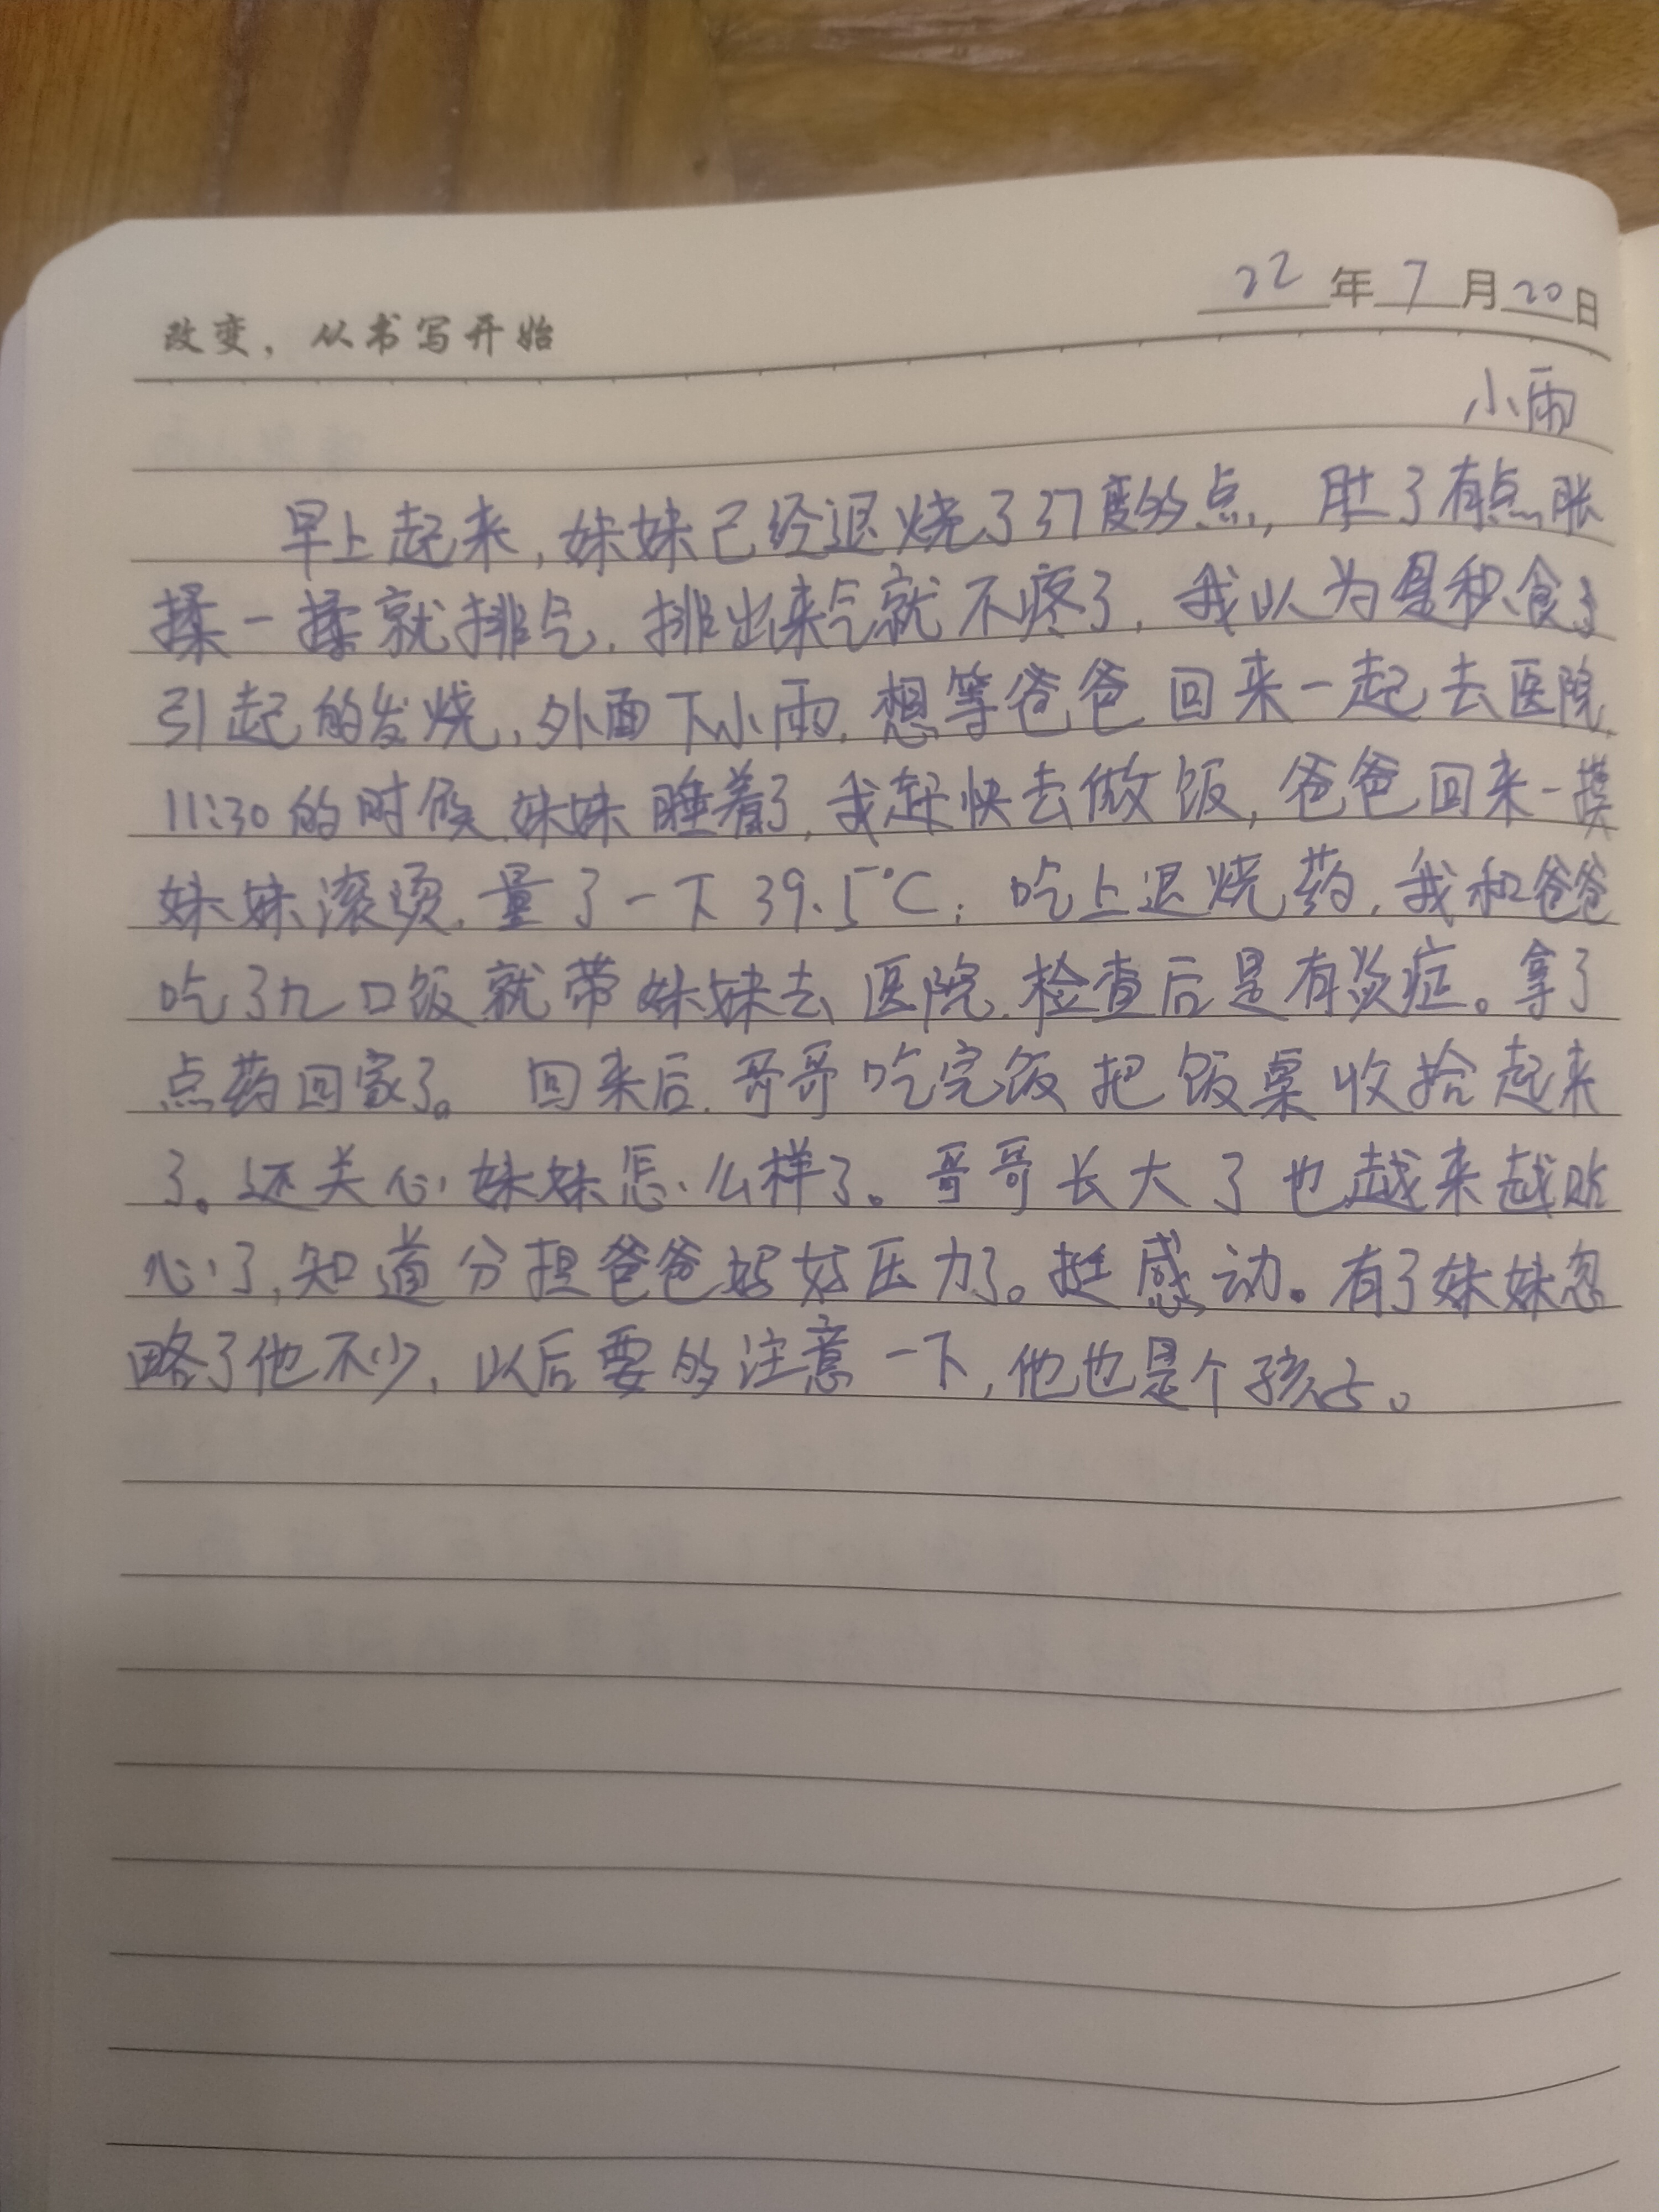 22年7月20日
改变，从书写开始
小雨
早上起来，妹妹已经退烧了37度的点，肚了有点胀
揉一揉就排气，排出来气就不疼了，我以为是积食了
引起的发烧，外面下小雨，想等爸爸回来一起去医院，
11:30的时候，妹妹睡着了，我赶快去做饭，爸爸回来一摸
妹妹滚烫，量了一下39.5℃；吃上退烧药，我和爸爸
吃了几口饭就带妹妹去医院，检查后是有炎症。拿了
点药回家了。回来后，哥哥吃完饭把饭桌收拾起来
了。还关心妹妹怎么样了。哥哥长大了也越来越贴
心了，知道分担爸爸妈妈压力了。挺感动。有了妹妹忽
略了他不少，以后要的注意一下，他也是个孩子。